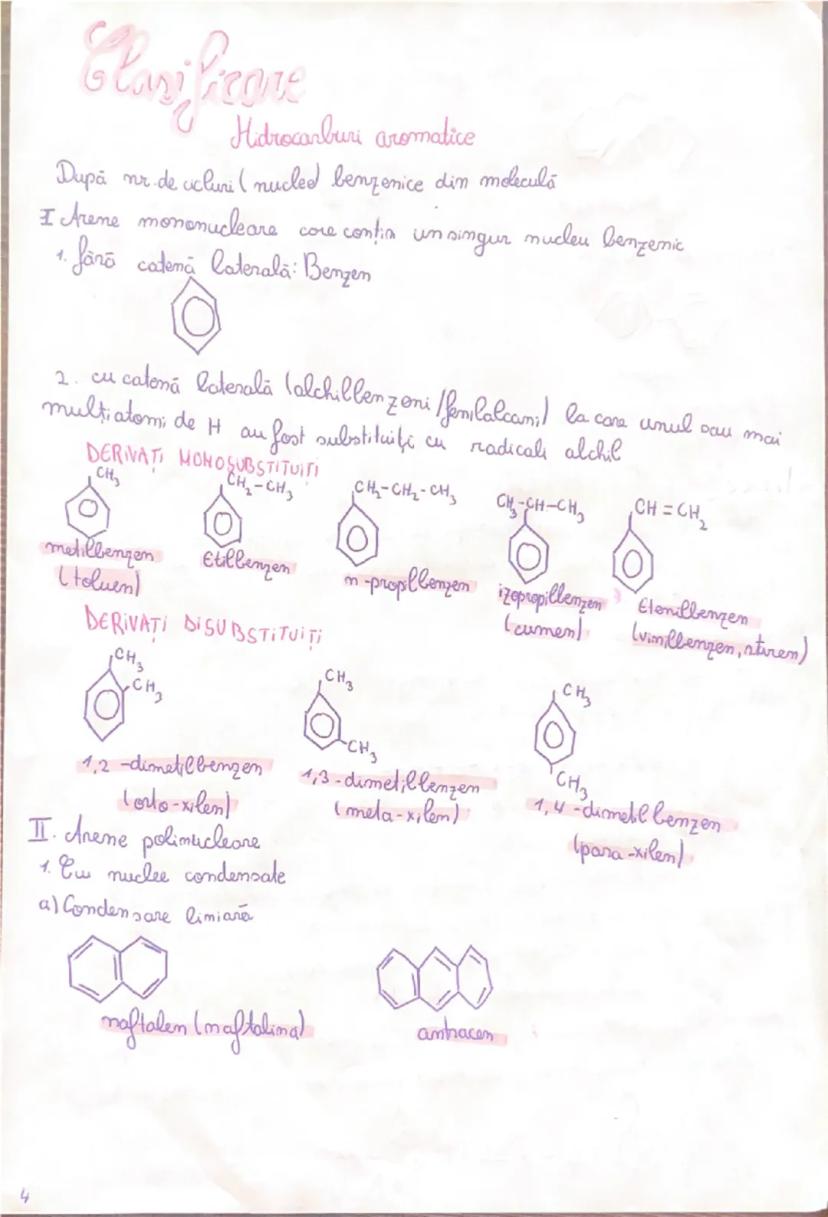 Clasificare
Hidrocarburi aromatice
După nr. de cicluri (nuclee) benzenice din moleculă
I Arene mononucleare care conțin un singur nucleu benzenic
1. fără catenă laterală: Benzen
2. cu catenă laterală (alchilbenzeni/fenilalcani) la care unul sau mai
mulți atomi de H au fost substituiți cu radicali alchil
DERIVAȚI MONOSUBSTITUIȚI
CH3 CH2-CH3 CH2-CH2-CH3 CH3-CH-CH3 CH=CH2
metilbenzen Etilbenzen n-propilbenzen izopropilbenzen Etenilbenzen
(toluen) (cumen) (vinilbenzen, stiren)
DERIVAȚI DISUBSTITUIȚI
CH3 CH3 CH3
CH3 CH3 CH3
1,2-dimetilbenzen 1,3-dimetilbenzen 1,4-dimetilbenzen
(orto-xilen) (meta-xilen) (para-xilen)
II. Arene polinucleare
1. Cu nuclee condensate
a) Condensare liniară
naftalen (naftalina) antracen
4